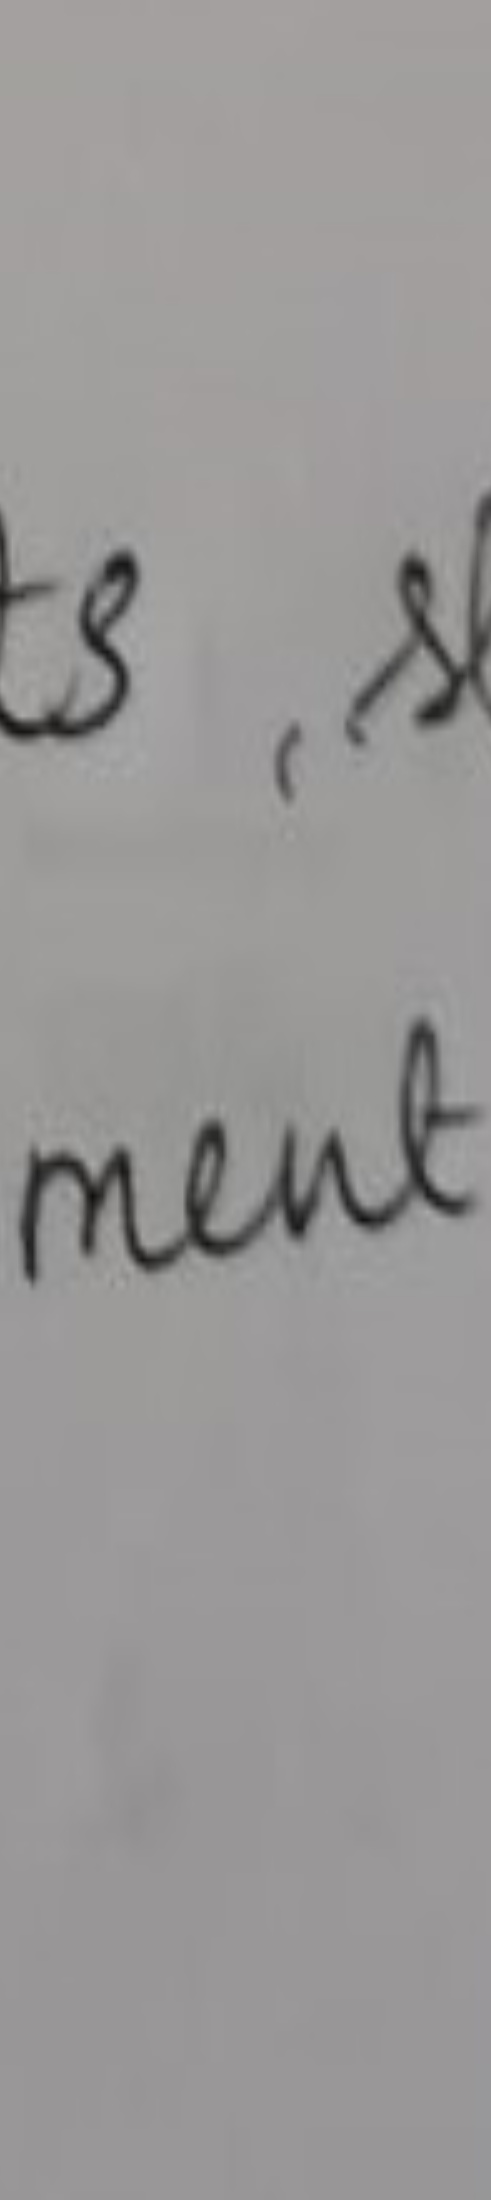 ts, s
ment